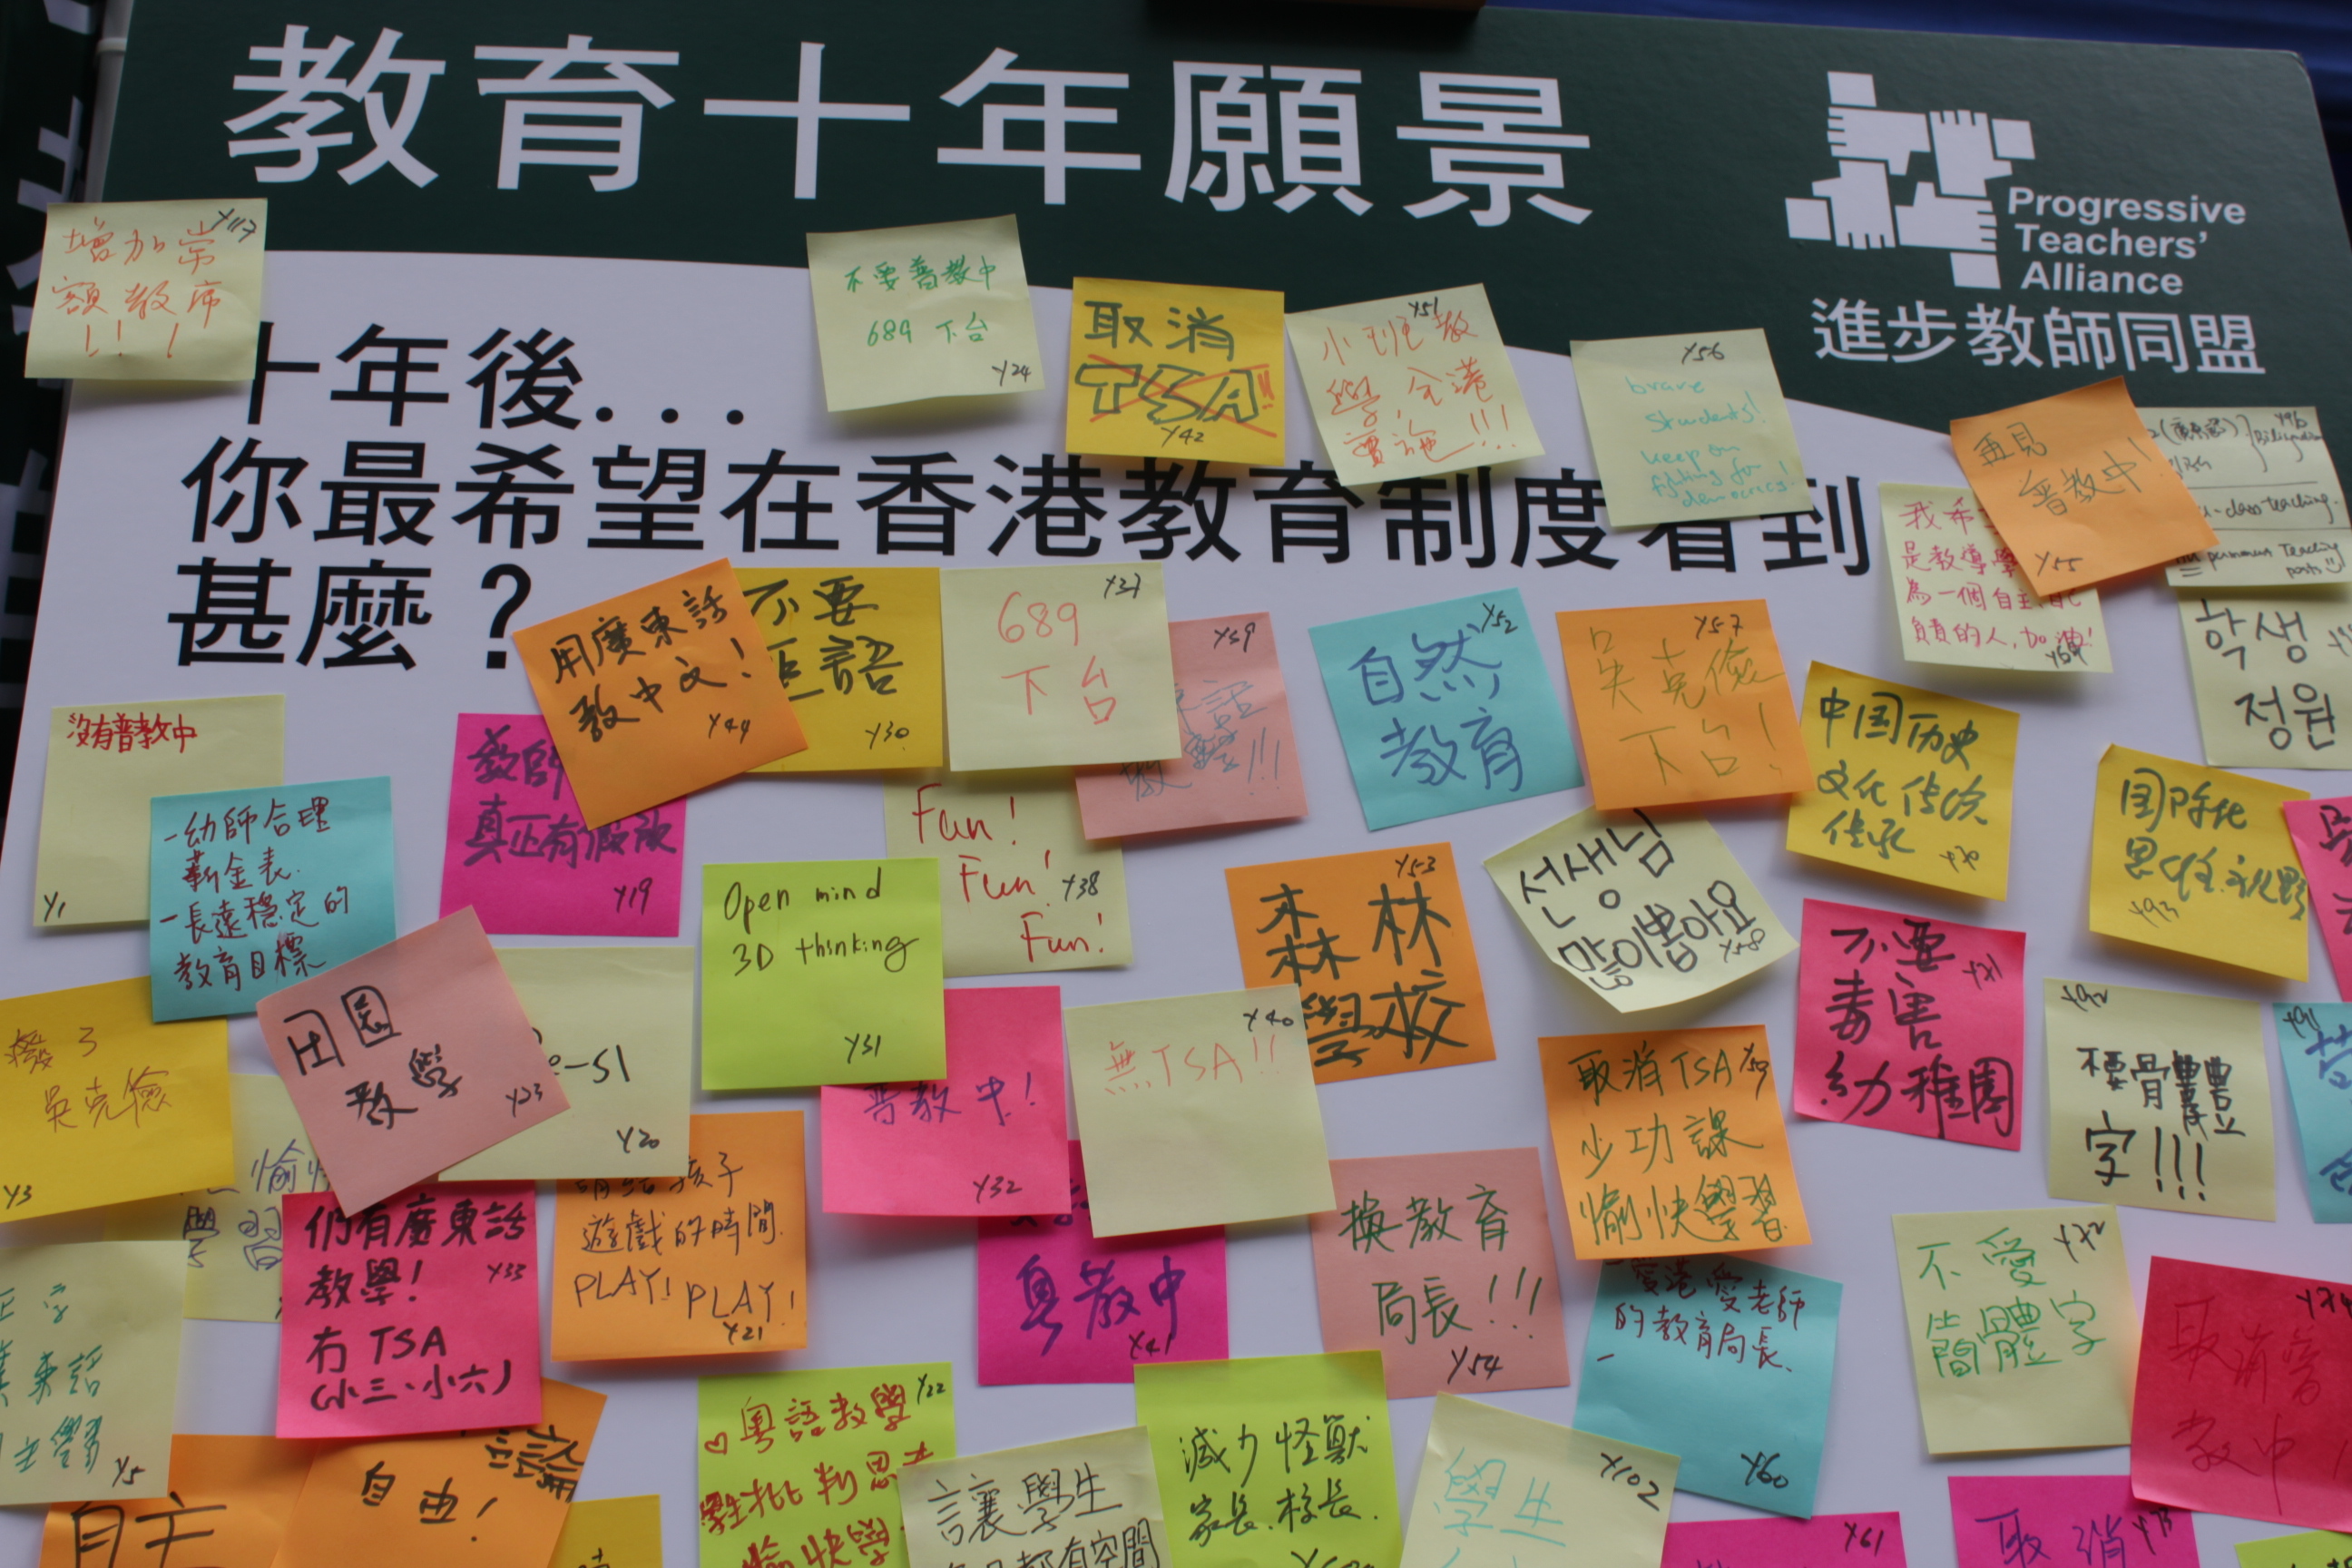 教育十年願景
Progressive
Teachers'
Alliance
進步教師同盟
十年後...
你最希望在香港教育制度看到
甚麼？
增加常
額教席
!!!
Y117
不要普教中
689 下台
Y24
取消
TSA!!
Y42
Y51
小班教
學,全港
實施!!!
Y56
brave
students!
keep on
fighting for
democracy!
再見
普教中!
Y55
Y96
Bilingualism
class teaching.
permanent Teaching
posts
我希
是教導學
為一個自主,自
負責的人,加油!
Y64
학생
정원
用廣東話
教中文!
Y44
不要
語
Y30
Y37
689
下台
Y39
話
教學!!!
Y52
自然
教育
Y57
吴克儉
下台!
中国历史
文化传统
传承
Y70
国际化
思维.视野
Y93
沒有普教中
Y1
-幼師合理
薪金表.
-長遠穩定的
教育目標
教師
真正有假放
Y19
Fun!
Fun!
Fun!
Y38
Open mind
3D thinking
Y31
Y53
森林
學校
선생님
많이뽑아요
Y58
不要
毒害
幼稚園
Y71
Y92
梗骨體
字!!!
Y91
撥了
吳克儉
Y3
田園
教學
Y23
-S1
Y20
普教中!
Y32
Y40
無TSA!!
取消TSA
少功課
愉快學習
Y59
愉
學習
們有廣東話
教學!
冇TSA
(小三、小六)
Y33
請給孩子
遊戲的時間.
PLAY! PLAY!
Y21
粵教中
Y41
換教育
局長!!!
Y54
愛港愛老師
的教育局長.
Y60
Y72
不愛
簡體字
取消普
教中
東話
Y5
自主
自由!
Y22
♡粵語教學
批判思考
愉快學
讓學生
都有空間
減少怪獸
家長.校長.
Y102
學生
Y61
取消
Y73